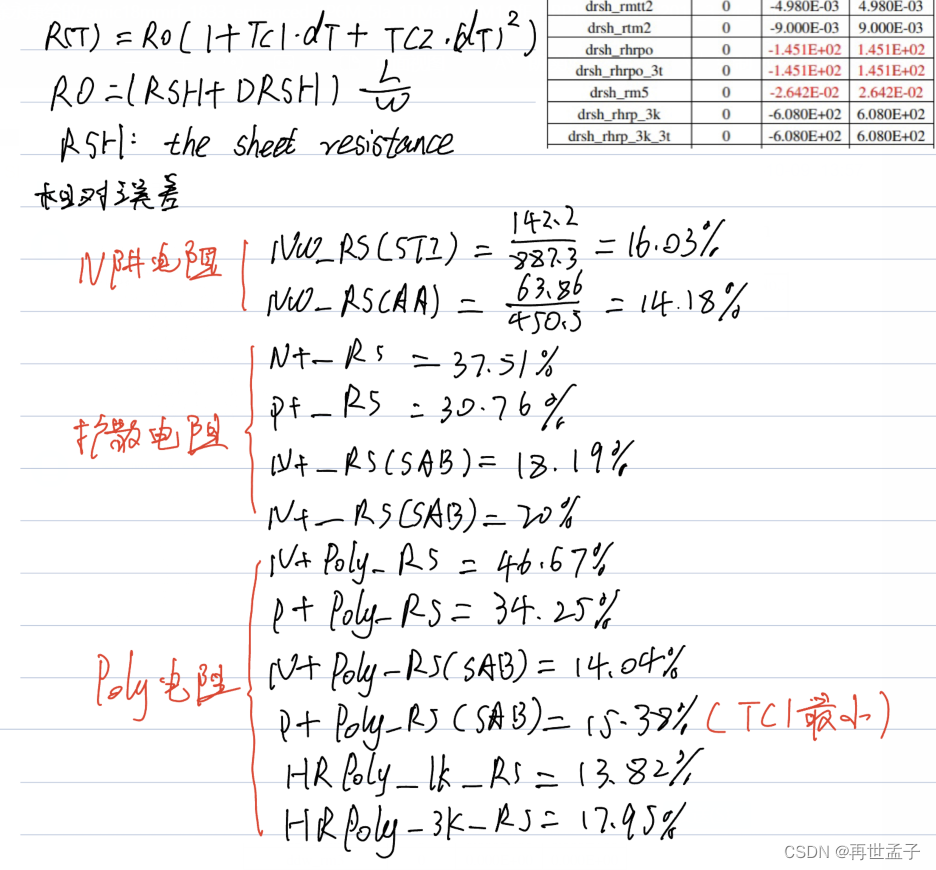 R(T) = R0(1+TC1·dT+TC2·(dT)²)
R0=(RSH+DRSH) L/W
RSH: the sheet resistance
相对误差
drsh_rmtt2 0 -4.980E-03 4.980E-03
drsh_rtm2 0 -9.000E-03 9.000E-03
drsh_rhrpo 0 -1.451E+02 1.451E+02
drsh_rhrpo_3t 0 -1.451E+02 1.451E+02
drsh_rm5 0 -2.642E-02 2.642E-02
drsh_rhrp_3k 0 -6.080E+02 6.080E+02
drsh_rhrp_3k_3t 0 -6.080E+02 6.080E+02
N阱电阻
NW_RS(STI) = 142.2/887.3 = 16.03%
NW_RS(AA) = 63.86/450.5 = 14.18%
扩散电阻
N+_RS = 37.51%
P+_RS = 30.76%
N+_RS(SAB) = 18.19%
N+_RS(SAB) = 20%
Poly电阻
N+Poly_RS = 46.67%
P+Poly_RS = 34.25%
N+Poly_RS(SAB) = 14.04%
P+Poly_RS(SAB) = 15.38% (TC1最小)
HRPoly_1k_RS = 13.82%
HRPoly_3K_RS = 17.95%
CSDN @再世孟子